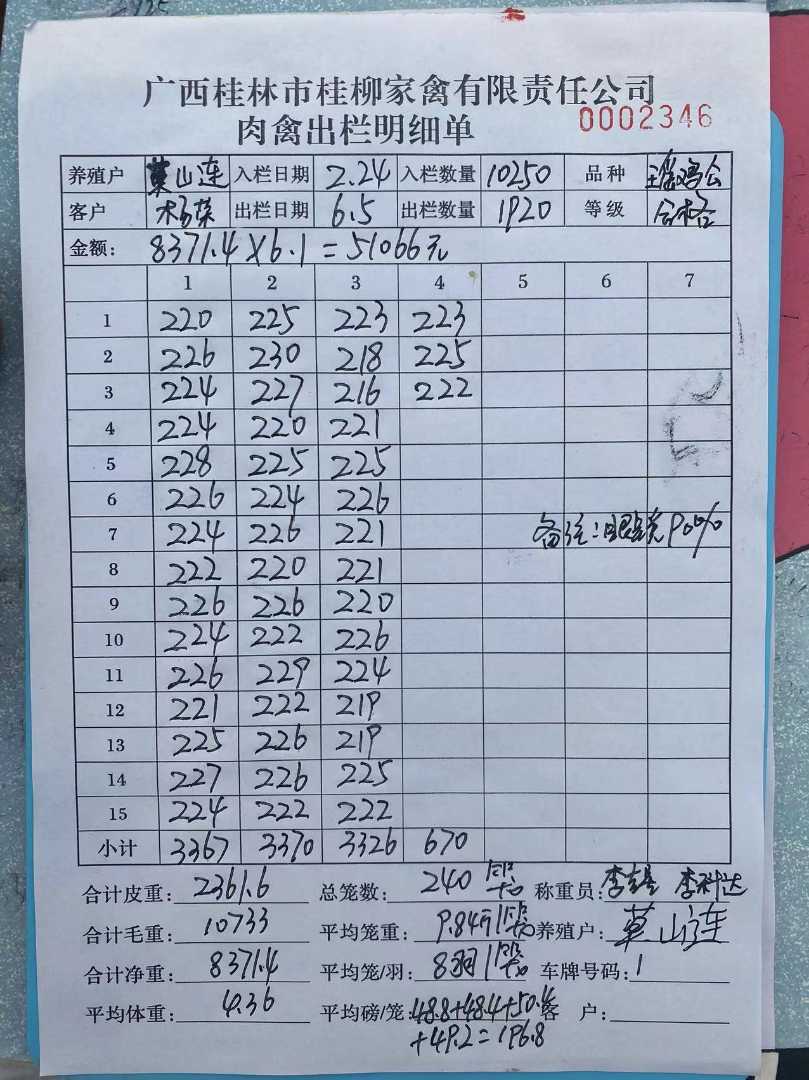 广西桂林市桂柳家禽有限责任公司
肉禽出栏明细单 0002346
养殖户 莫山连 入栏日期 2.24 入栏数量 10250 品种 瑶鸡公
客户 杨荣 出栏日期 6.5 出栏数量 1920 等级 合格
金额: 8371.4×6.1=51066元
1 2 3 4 5 6 7
1 220 225 223 223
2 226 230 218 225
3 224 227 216 222
4 224 220 221
5 228 225 225
6 226 224 226
7 224 226 221 备注: 90%
8 222 220 221
9 226 226 220
10 224 222 226
11 226 229 224
12 221 222 219
13 225 226 219
14 227 226 225
15 224 222 222
小计 3367 3370 3326 670
合计皮重: 2361.6 总笼数: 240 称重员: 李 李科达
合计毛重: 10733 平均笼重: 9.84斤/ 养殖户: 莫山连
合计净重: 8371.4 平均笼/羽: 8羽/ 车牌号码: 1
平均体重: 4.36 平均磅/笼: 48.8+48.4+50.4 客 户:
+49.2=196.8